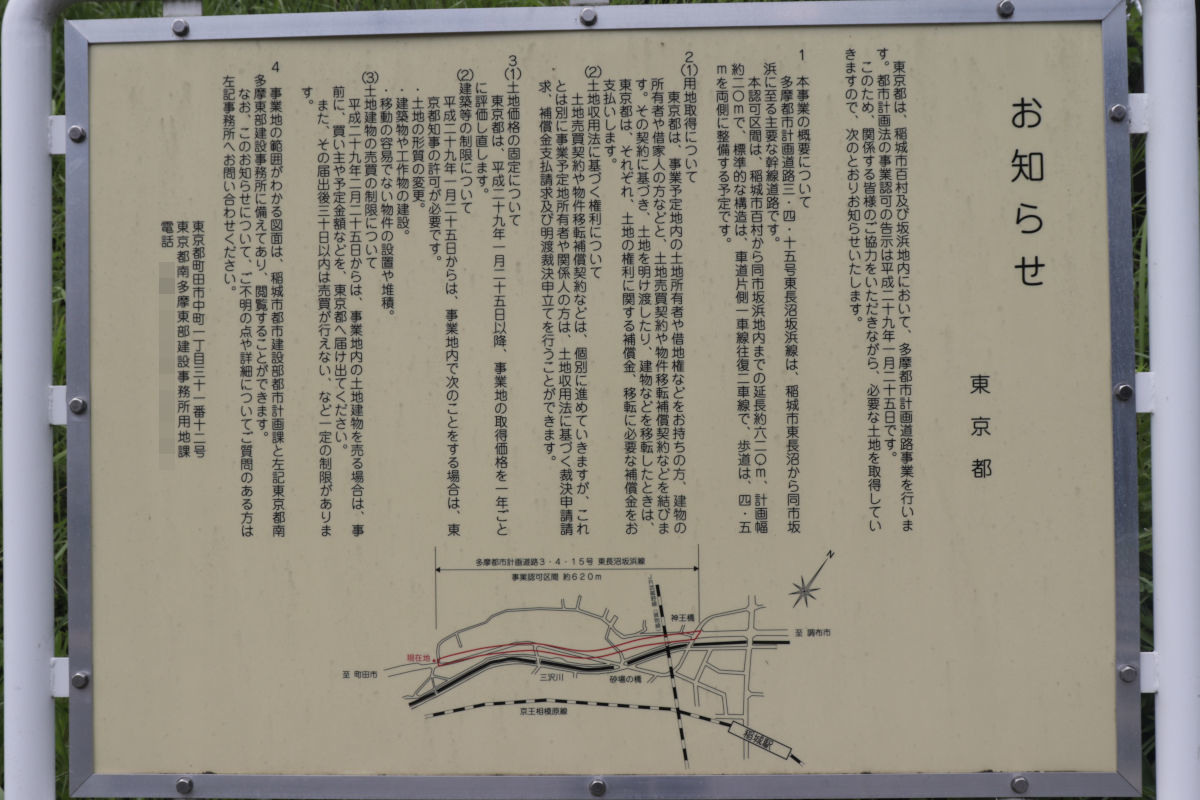 お知らせ
東京都
東京都は、稲城市百村及び坂浜地内において、多摩都市計画道路事業を行いま
す。都市計画法の事業認可の告示は平成二十九年一月二十五日です。
このため、関係する皆様のご協力をいただきながら、必要な土地を取得してい
きますので、次のとおりお知らせいたします。
1 本事業の概要について
多摩都市計画道路三・四・十五号東長沼坂浜線は、稲城市東長沼から同市坂
浜に至る主要な幹線道路です。
本認可区間は、稲城市百村から同市坂浜地内までの延長約六二〇m、計画幅
約二〇mで、標準的な構造は、車道片側一車線往復二車線で、歩道は、四・五
mを両側に整備する予定です。
2(1)用地取得について
東京都は、事業予定地内の土地所有者や借地権などをお持ちの方、建物の
所有者や借家人の方などと、土地売買契約や物件移転補償契約などを結びま
す。その契約に基づき、土地を明け渡したり、建物などを移転したときは、
東京都は、それぞれ、土地の権利に関する補償金、移転に必要な補償金をお
支払いします。
(2)土地収用法に基づく権利について
土地売買契約や物件移転補償契約などは、個別に進めていきますが、これ
とは別に事業予定地所有者や関係人の方は、土地収用法に基づく裁決申請請
求、補償金支払請求及び明渡裁決申立てを行うことができます。
3(1)土地価格の固定について
東京都は、平成二十九年一月二十五日以降、事業地の取得価格を一年ごと
に評価し直します。
(2)建築等の制限について
平成二十九年一月二十五日からは、事業地内で次のことをする場合は、東
京都知事の許可が必要です。
・土地の形質の変更。
・建築物や工作物の建設。
・移動の容易でない物件の設置や堆積。
(3)土地建物の売買の制限について
平成二十九年二月二十五日からは、事業地内の土地建物を売る場合は、事
前に、買い主や予定金額などを、東京都へ届け出てください。
また、その届出後三十日以内は売買が行えない、など一定の制限がありま
す。
4 事業地の範囲がわかる図面は、稲城市都市建設部都市計画課と左記東京都南
多摩東部建設事務所に備えてあり、閲覧することができます。
なお、このお知らせについて、ご不明の点や詳細についてご質問のある方は
左記事務所へお問い合わせください。
東京都町田市中町一丁目三十一番十二号
東京都南多摩東部建設事務所用地課
電話
多摩都市計画道路3・4・15号 東長沼坂浜線
事業認可区間 約620m
N
神王橋
至 調布市
現在地
至 町田市
三沢川
砂場の橋
京王相模原線
稲城駅